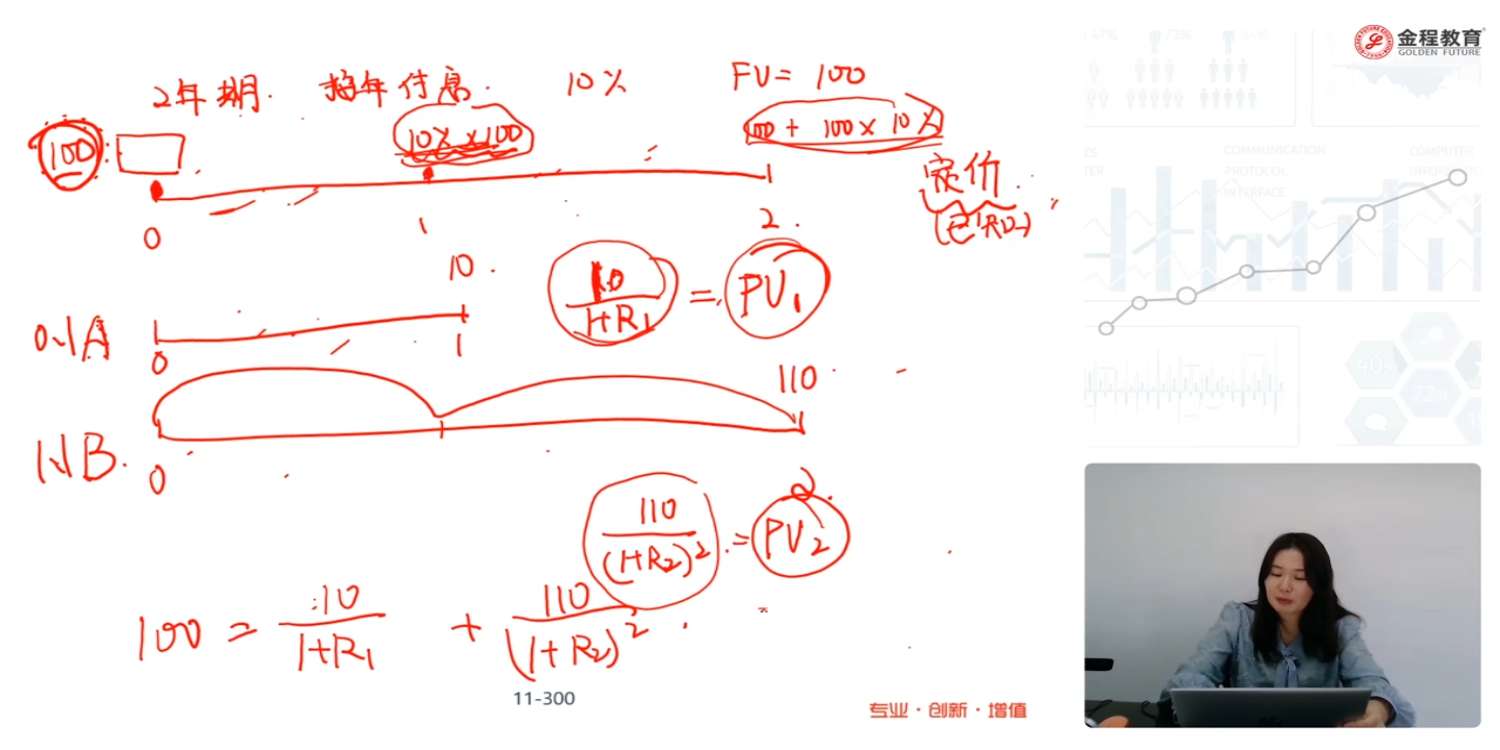 金程教育
GOLDEN FUTURE
2年期. 按年付息. 10% FV = 100
100 10% × 100 100 + 100 × 10%
定价.
0 1 2.
10.
10 / 1+R₁ = PV₁
0.1A 0 1
110
1.1B. 0
2.
110 / (1+R₂)² = PV₂
100 = 10 / 1+R₁ + 110 / (1+R₂)².
11-300
专业·创新·增值
COMMUNICATION
PROTOCOL
INTERFACE